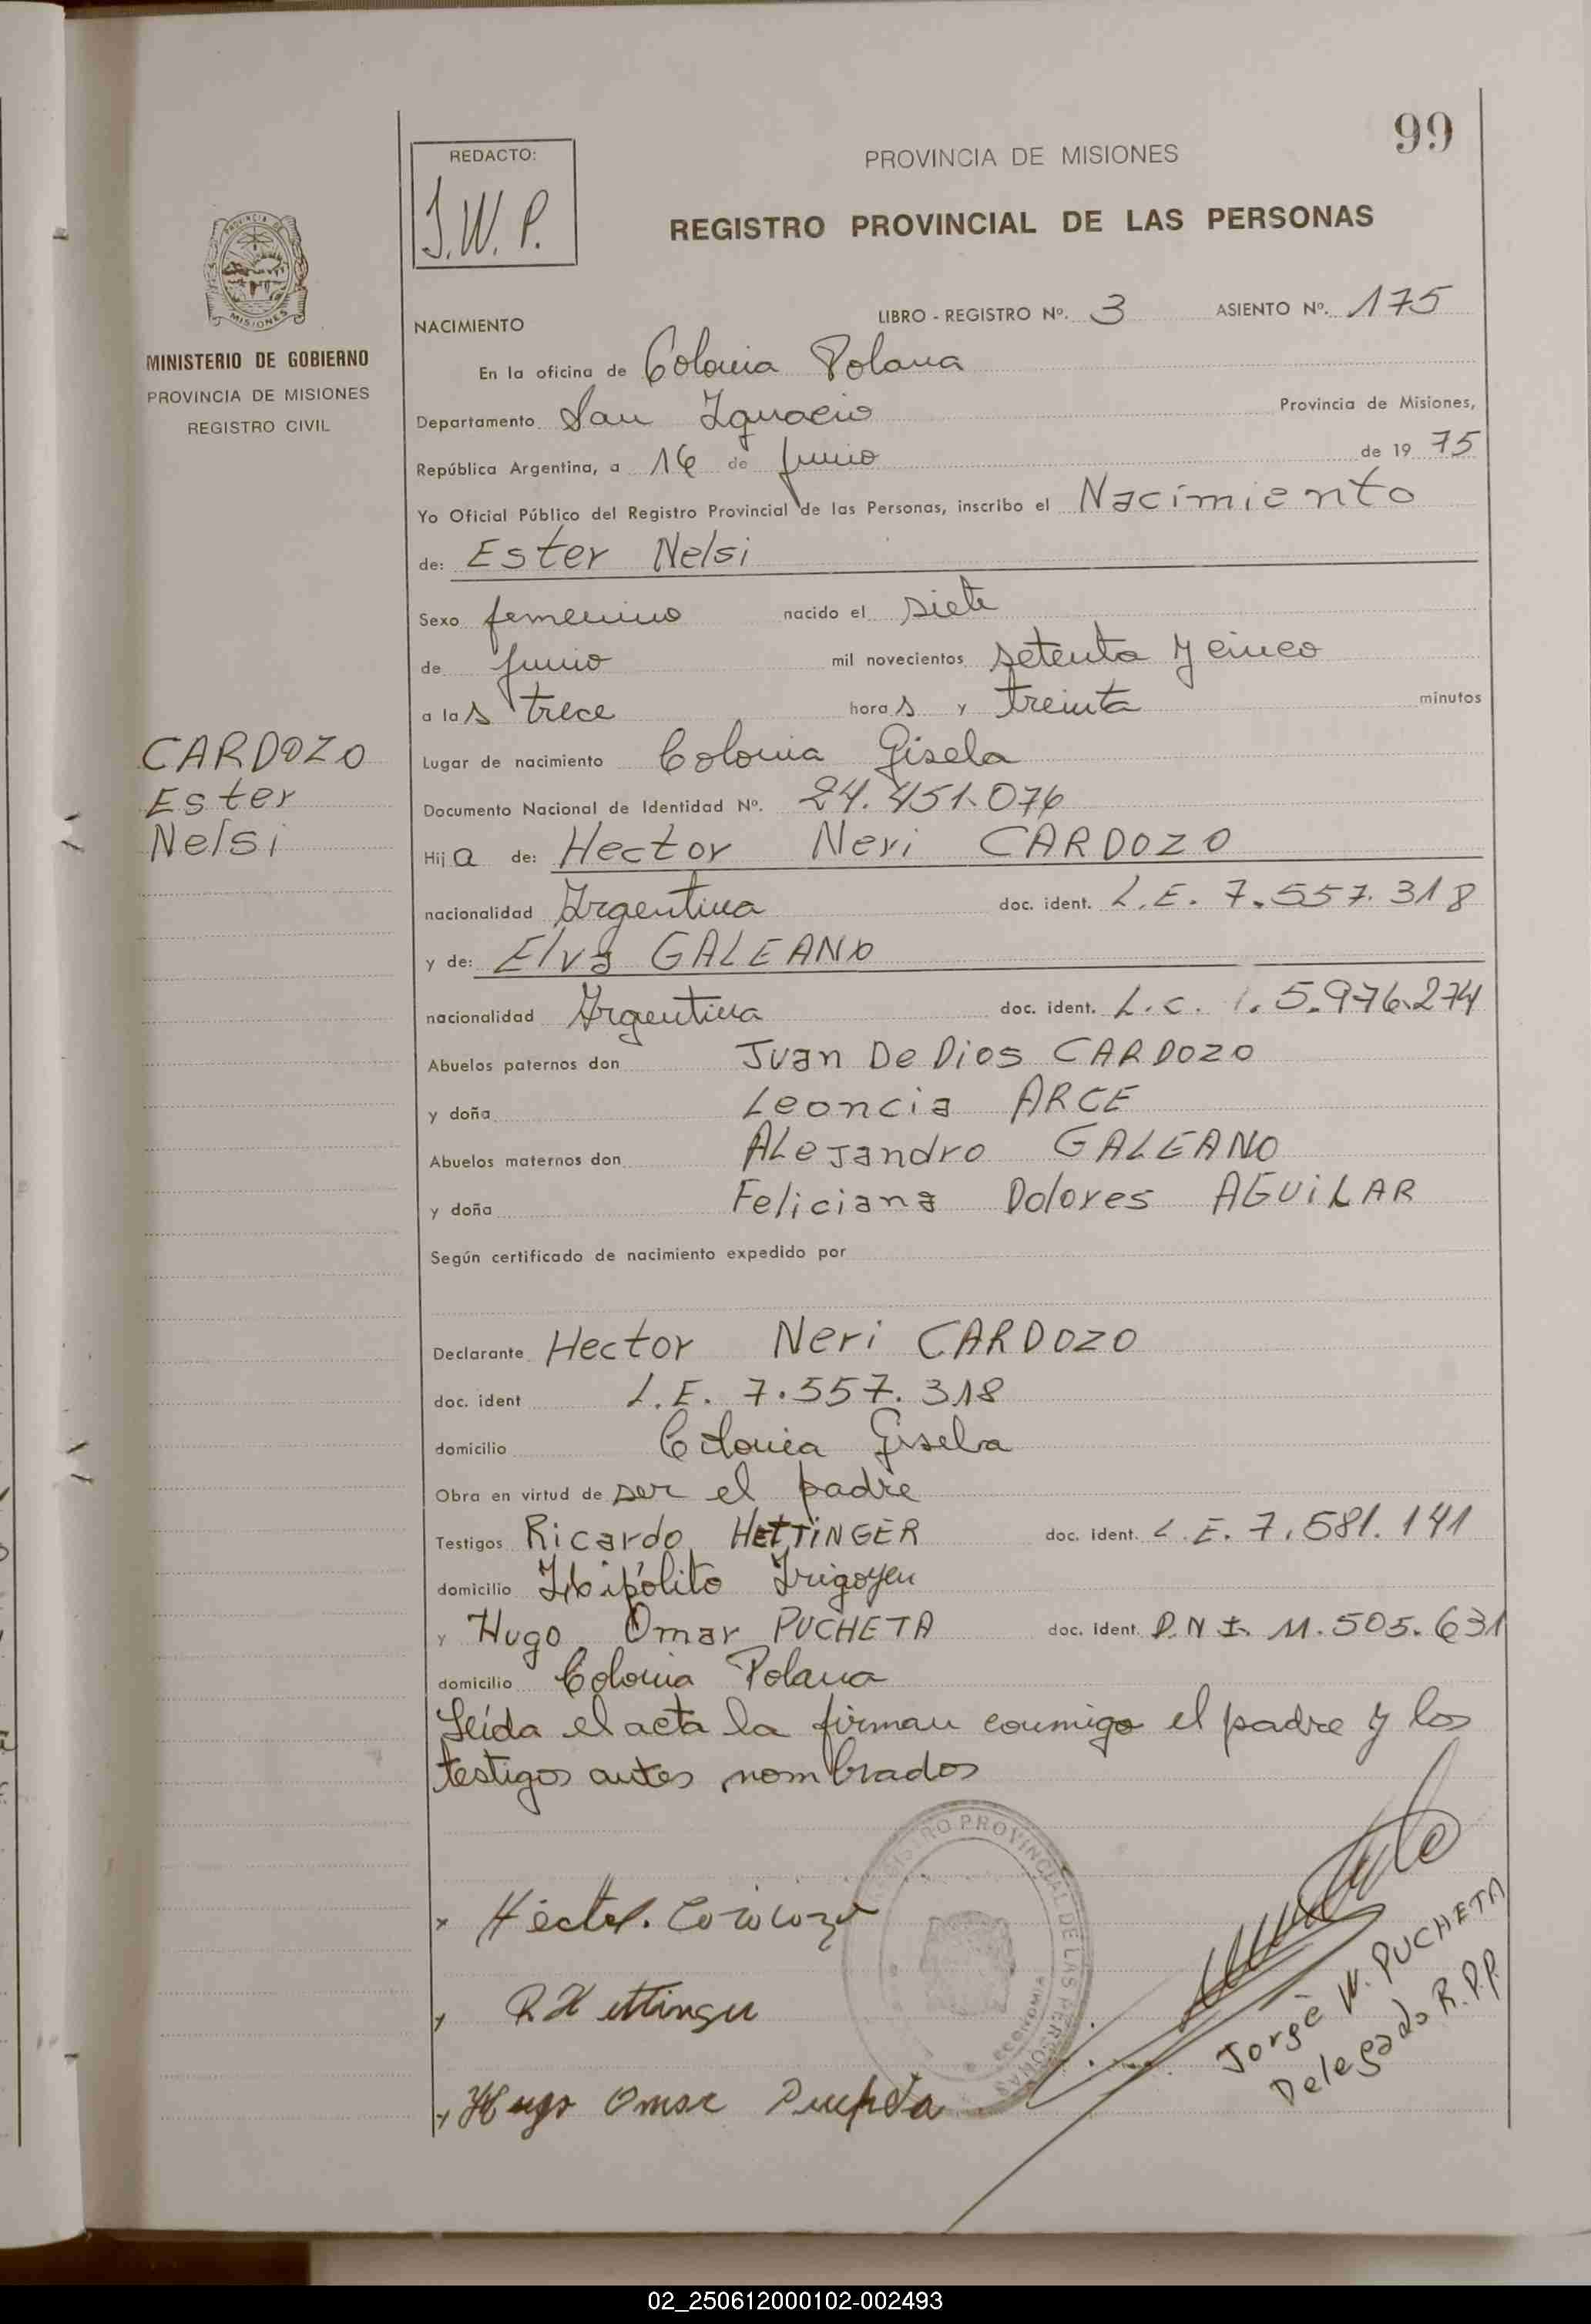 99
REDACTO:
J.W.P.
PROVINCIA DE MISIONES
REGISTRO PROVINCIAL DE LAS PERSONAS
PROVINCIA DE
MISIONES
MINISTERIO DE GOBIERNO
PROVINCIA DE MISIONES
REGISTRO CIVIL
NACIMIENTO LIBRO - REGISTRO Nº. 3 ASIENTO Nº. 175
En la oficina de Colonia Polana
Departamento San Ignacio Provincia de Misiones,
República Argentina, a 16 de Junio de 19 75
Yo Oficial Público del Registro Provincial de las Personas, inscribo el Nacimiento
de: Ester Nelsi
Sexo femenino nacido el siete
de Junio mil novecientos setenta y cinco
a las trece horas y treinta minutos
CARDOZO
Ester
Nelsi
Lugar de nacimiento Colonia Gisela
Documento Nacional de Identidad Nº. 24.451.076
Hija de: Hector Neri CARDOZO
nacionalidad Argentina doc. ident. L.E. 7.557.318
y de: Elva GALEANO
nacionalidad Argentina doc. ident. L.C. 5.976.274
Abuelos paternos don Juan De Dios CARDOZO
y doña Leoncia ARCE
Abuelos maternos don ALejandro GALEANO
y doña Feliciana Dolores AGUiLAR
Según certificado de nacimiento expedido por
Declarante Hector Neri CARDOZO
doc. ident L.E. 7.557.318
domicilio Colonia Gisela
Obra en virtud de ser el padre
Testigos Ricardo HETTiNGER doc. ident. L.E. 7.581.141
domicilio Hipólito Irigoyen
y Hugo Omar PUCHETA doc. ident. D.N.I. 11.505.631
domicilio Colonia Polana
Leída el acta la firman conmigo el padre y los
testigos antes nombrados
REGISTRO PROVINCIAL DE LAS PERSONAS
ECONOMIA
x Héctor Cardozo
R Hettinger
Hugo Omar Pucheta
Jorge W. PUCHETA
Delegado R.P.P.
02_250612000102-002493